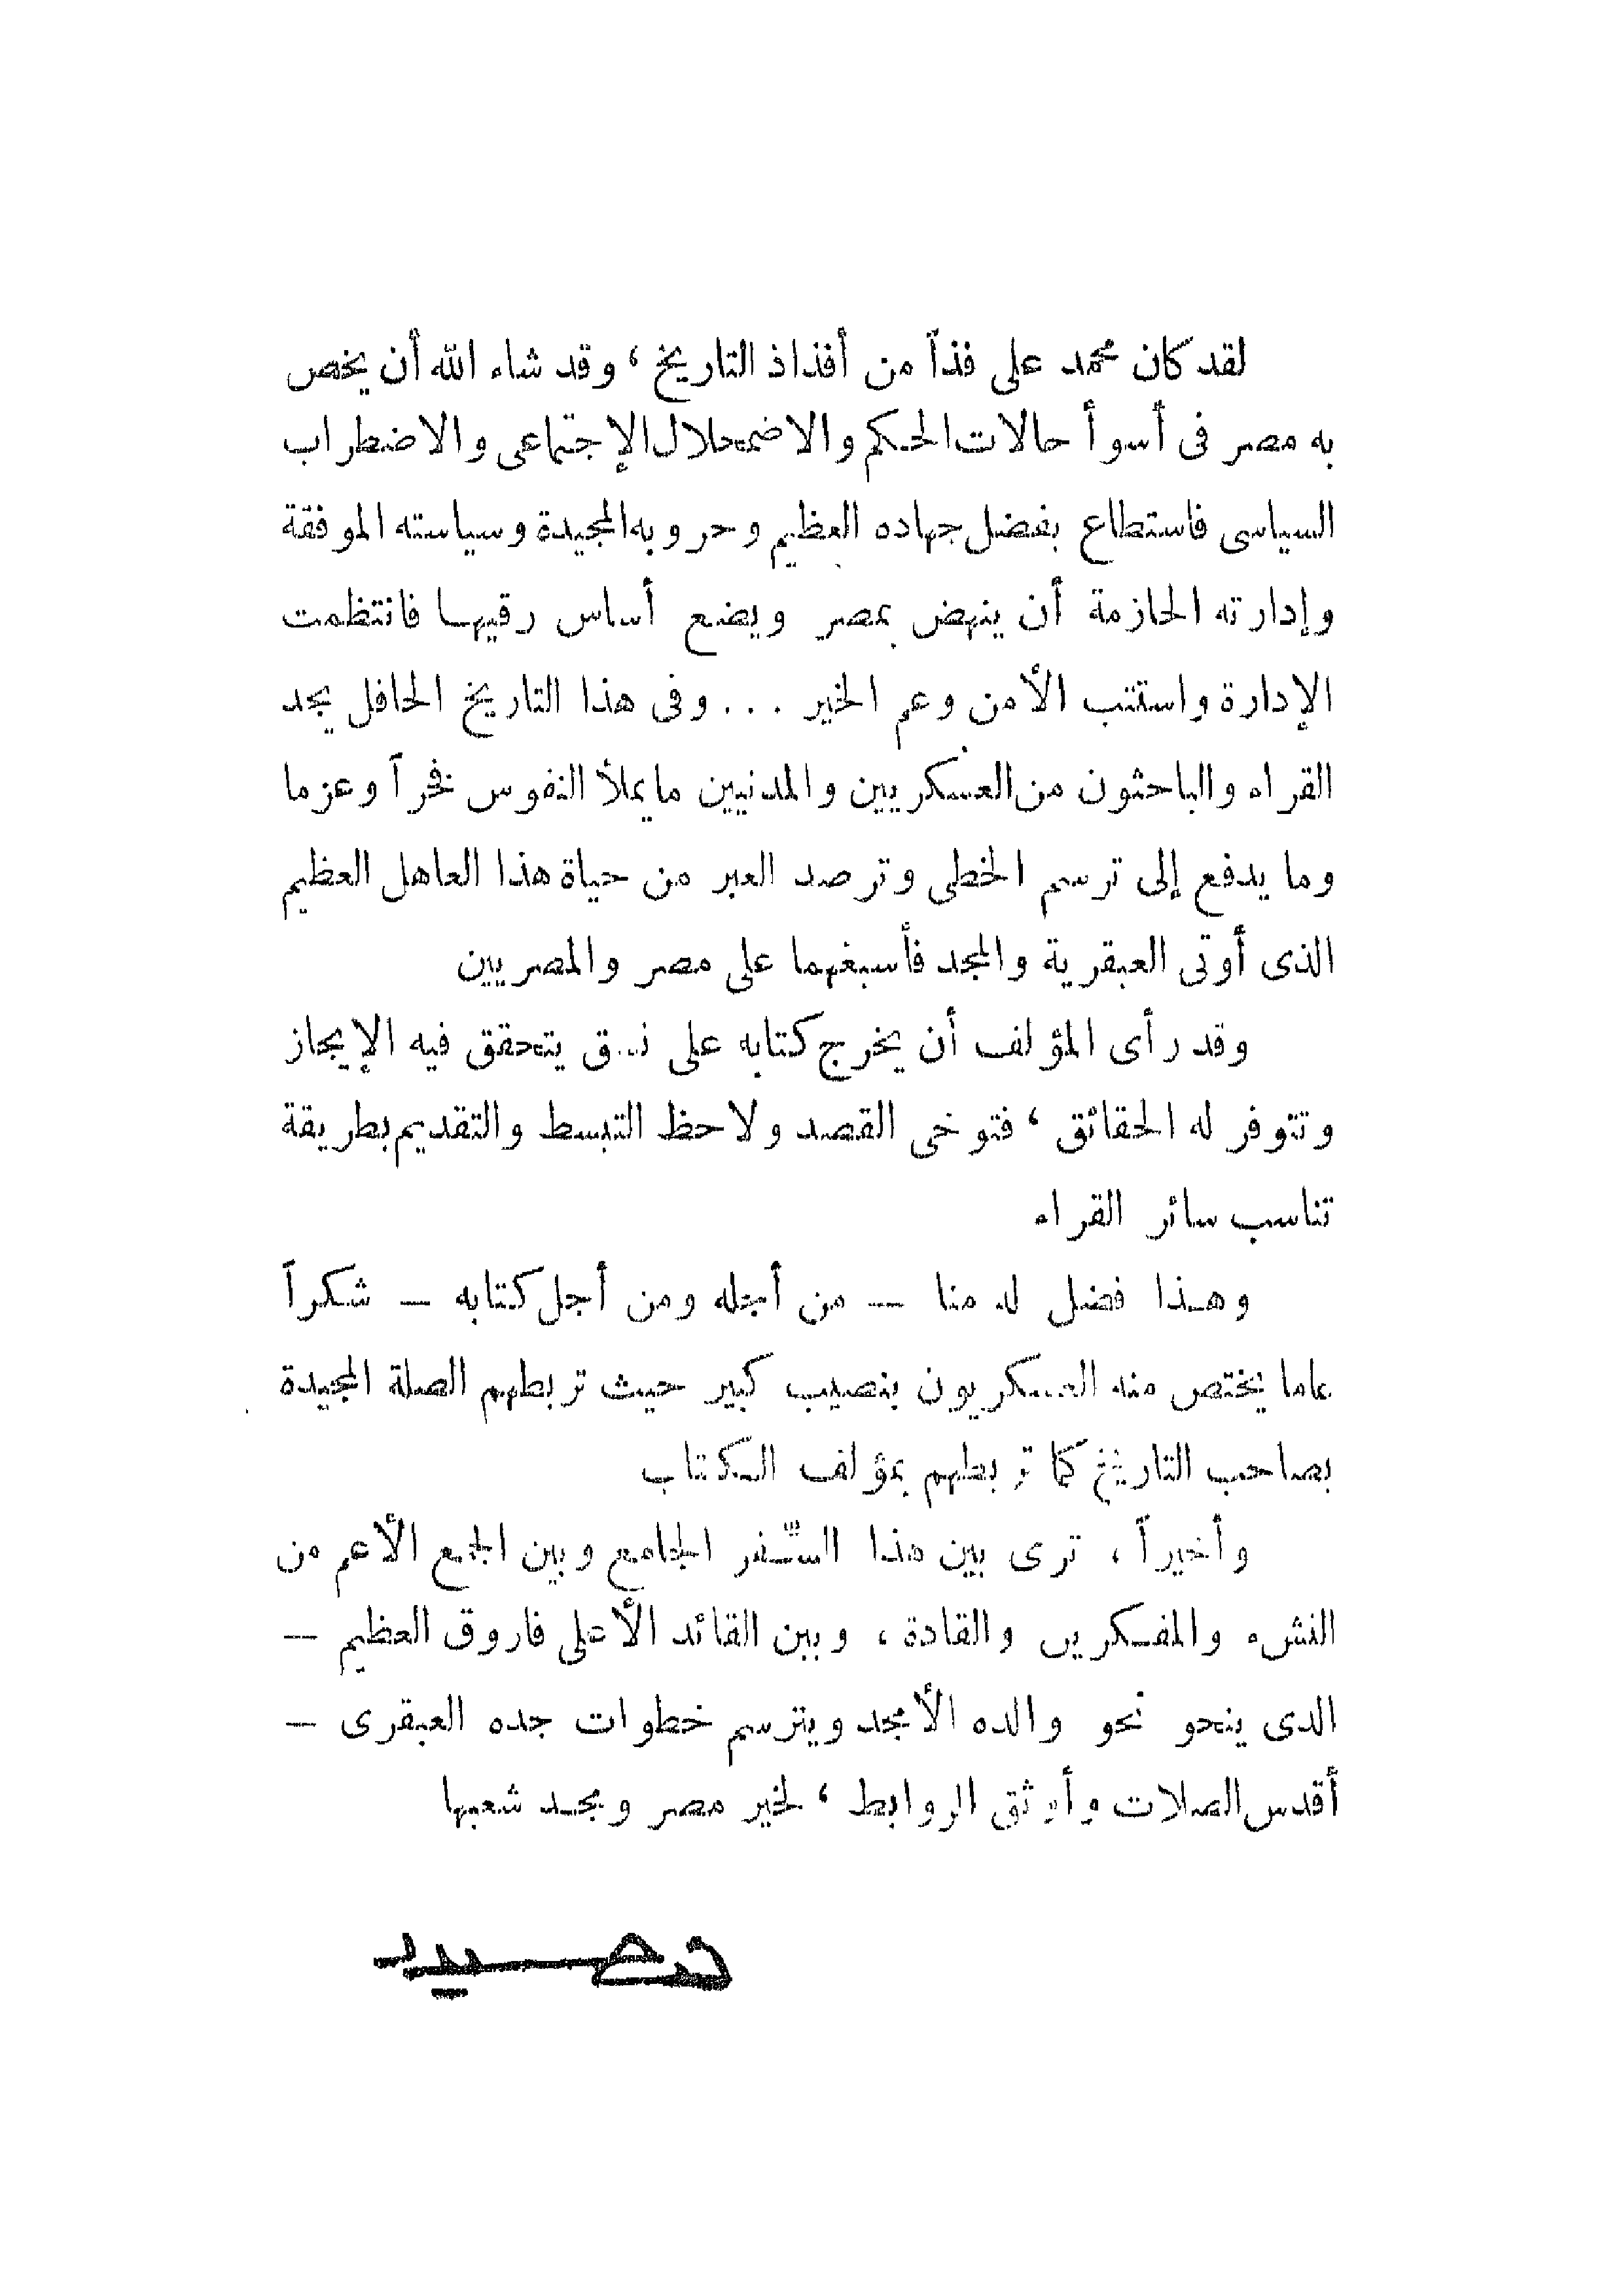 لقد كان محمد على فذاً من أفذاذ التاريخ ، وقد شاء الله أن يخص
به مصر فى أسوأ حالات الحكم والاضمحلال الإجتماعى والاضطراب
السياسى فاستطاع بفضل جهاده العظيم وحروبه المجيدة وسياسته الموفقة
وإدارته الحازمة أن ينهض بمصر ويضع أساس رقيها فانتظمت
الإدارة واستتب الأمن وعم الخير ... وفى هذا التاريخ الحافل يجد
القراء والباحثون من العسكريين والمدنيين ما يملأ النفوس فخراً وعزما
وما يدفع إلى ترسم الخطى وترصد العبر من حياة هذا العاهل العظيم
الذى أوتى العبقرية والمجد فأسبغهما على مصر والمصريين
وقد رأى المؤلف أن يخرج كتابه على نسق يتحقق فيه الإيجاز
وتتوفر له الحقائق ، فتوخى القصد ولاحظ التبسط والتقديم بطريقة
تناسب سائر القراء
وهذا فضل له منا — من أجله ومن أجل كتابه — شكراً
عاما يختص منه العسكريون بنصيب كبير حيث تربطهم الصلة المجيدة
بصاحب التاريخ كما تربطهم بمؤلف الكتاب
وأخيراً ، ترى بين هذا السّفر الجامع وبين الجمع الأعم من
النشء والمفكرين والقادة ، وبين القائد الأعلى فاروق العظيم —
الذى ينحو نحو والده الأمجد ويترسم خطوات جده العبقرى —
أقدس الصلات وأوثق الروابط ، لخير مصر ومجد شعبها